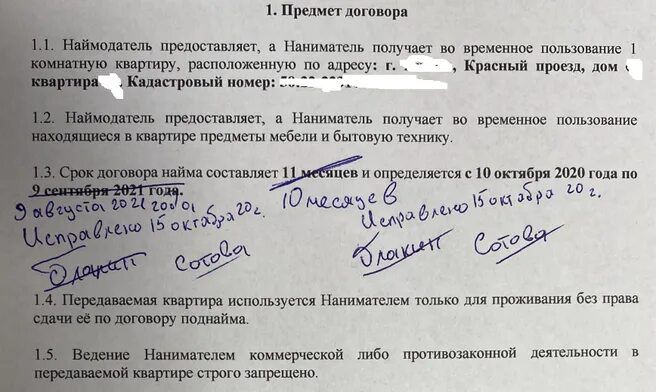 1. Предмет договора
1.1. Наймодатель предоставляет, а Наниматель получает во временное пользование 1
комнатную квартиру, расположенную по адресу: г. , Красный проезд, дом
квартира , Кадастровый номер:
1.2. Наймодатель предоставляет, а Наниматель получает во временное пользование
находящиеся в квартире предметы мебели и бытовую технику.
1.3. Срок договора найма составляет 11 месяцев и определяется с 10 октября 2020 года по
9 сентября 2021 года.
9 августа 2021 года
10 месяцев
Исправлено 15 октября 20 г.
Исправлено 15 октября 20 г.
Сотова
Сотова
1.4. Передаваемая квартира используется Нанимателем только для проживания без права
сдачи её по договору поднайма.
1.5. Ведение Нанимателем коммерческой либо противозаконной деятельности в
передаваемой квартире строго запрещено.